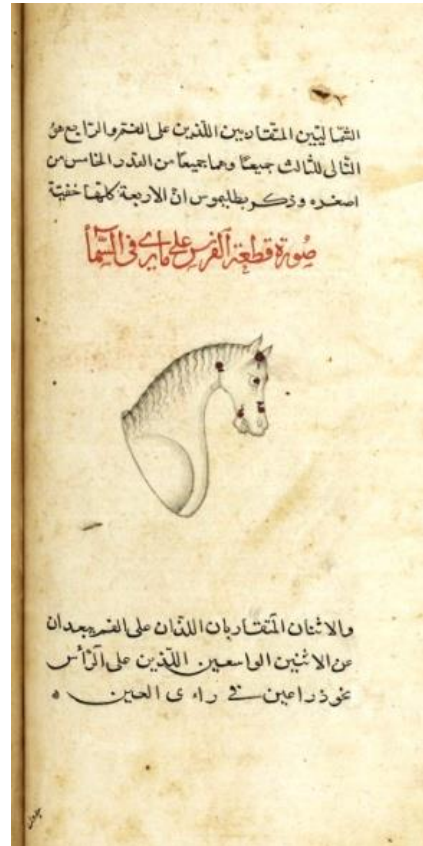 الشماليين المتقاربين اللذين على الفم والرابع هو
التالى للثالث جميعًا وهما جميعًا من القدر الخامس من
اصغره وذكر بطلميوس ان الاربعة كلها خفيّة
صورة قطعة الفرس على ما يرى فى السّما
والاثنان المتقاربان اللذان على الفم يبعدان
عن الاثنين الواسعين اللذين على الرأس
نحو ذراعين فى راى العين ه